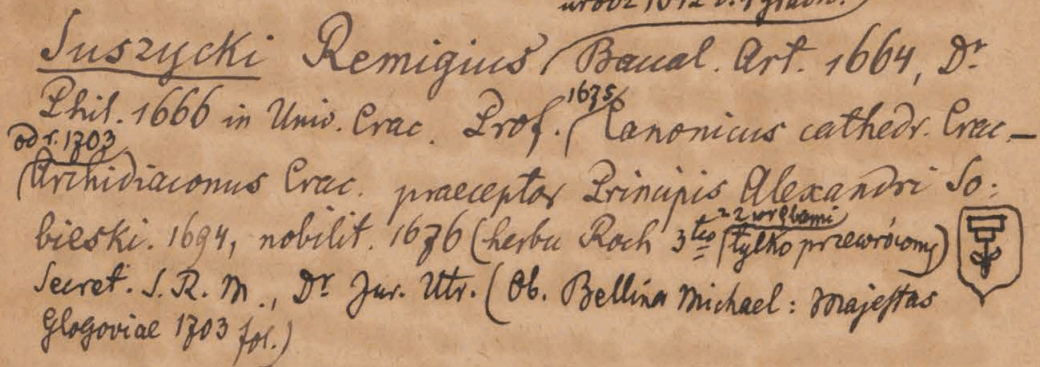 urodz 1642
Suszycki Remigius Bacal. Art. 1664, Dr
Phil. 1666 in Univ. Crac. Prof. 1675 Canonicus cathedr. Crac-
od r. 1703
Archidiaconus Crac. praeceptor Principis Alexandri So:
z 2 wrębami
bieski. 1694, nobilit. 1676 (herbu Roch 3tio (tylko przewrócony)
Secret. S. R. M., Dr Jur. Utr. (Ob. Bellina Michael: Majestas
Glogoviae 1703 fol.)